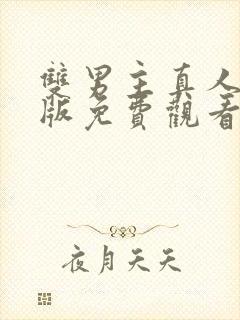 雙男主真人
版免費觀看
夜月天天